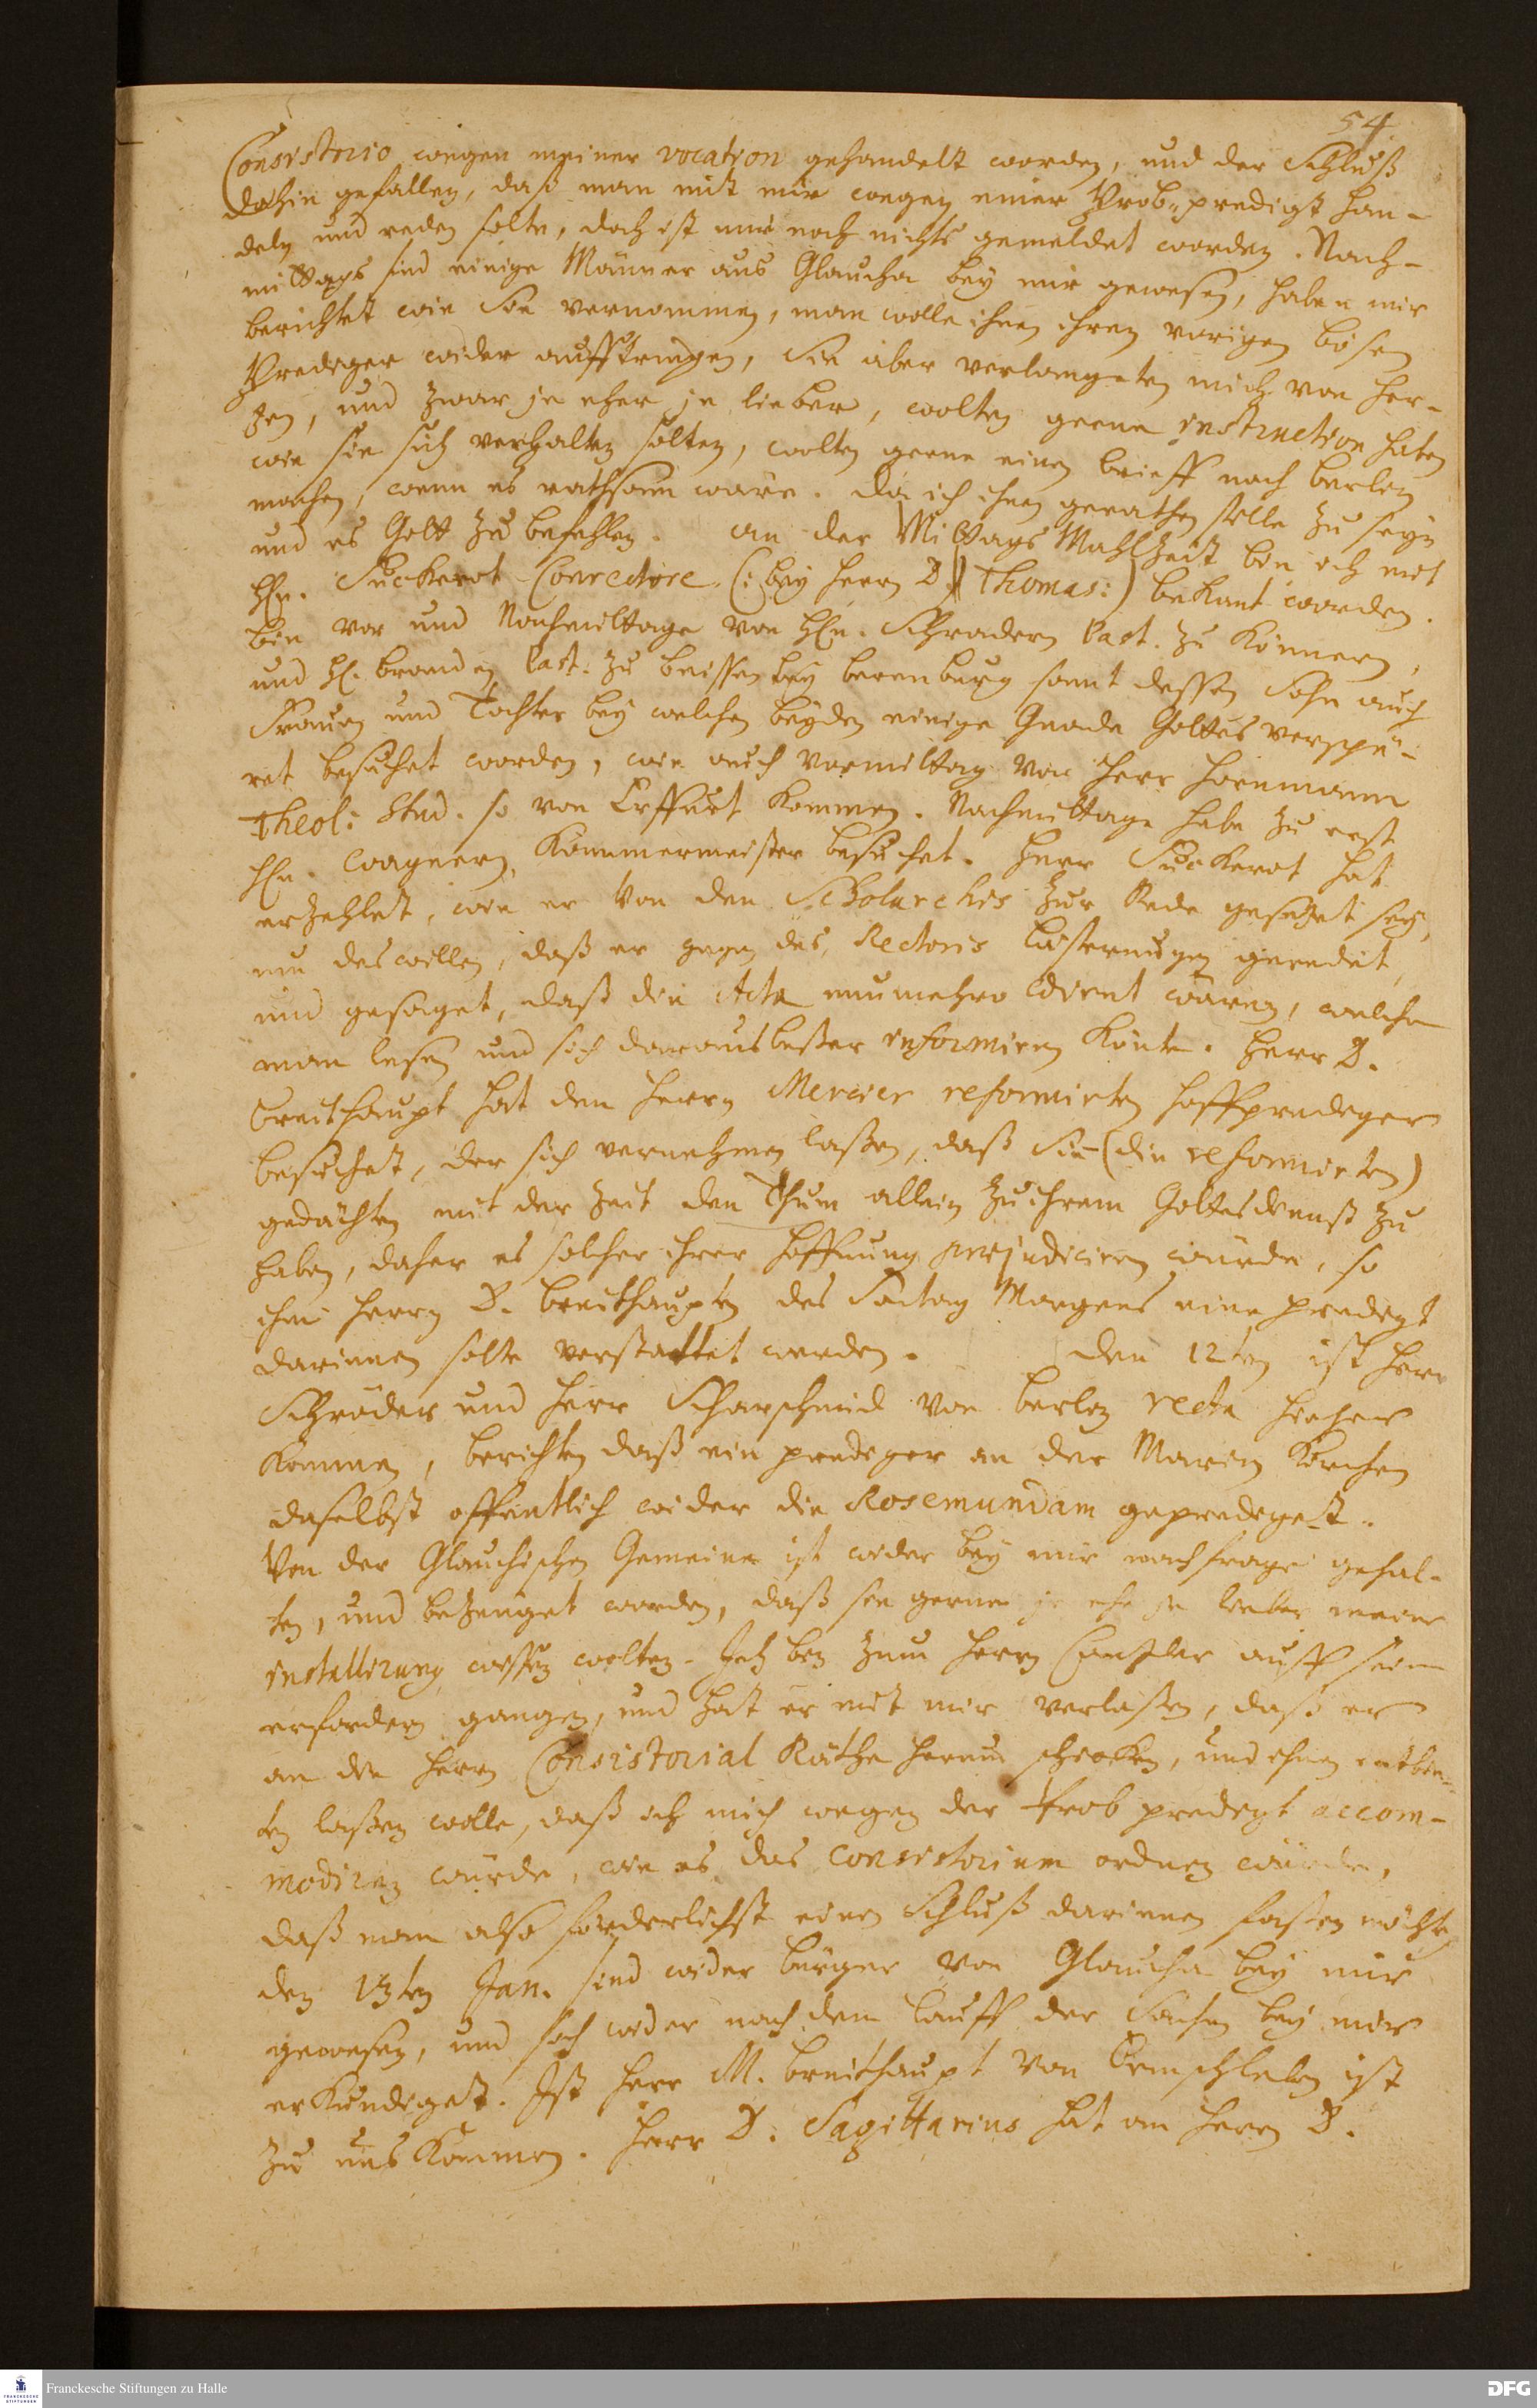 54.
Consistorio wegen meiner vocation gehandelt worden, und der Schluß
dahin gefallen, daß man mit mir wegen einer Prob-predigt han-
deln und reden solte, doch ist mir noch nichts gemeldet worden. Nach-
mittags sind einige Männer aus Glaucha bey mir gewesen, haben mir
berichtet wie Sie vernommen, man wolle ihnen ihren vorigen bösen
Prediger wider auffdringen, Sie aber verlangeten mich von Her-
zen, und zwar je eher je lieber, wolten gerne instruction haben
wie sie sich verhalten solten, wolten gerne einen brieff nach berlin
machen, wenn es rathsam wäre. Da ich ihnen gerathen stille zu seyn
und es Gott zu befehlen. An der Mittags Mahlzeit bin ich mit
Hn. Suckerot Conrectore (: bey Herrn D. Thomas :) bekant worden.
bin vor und Nachmittage von Hn. Schradern Past. zu Könnern,
und H. branden, Past. zu beissen bey berenburg samt dessen Sohn auch
Frauen und Tochter bey welchen beyden einige Gnade Gottes verspü-
ret besuchet worden, wie auch Vormittag von Herr Hornmann
Theol: Stud. so von Erffurt kommen. Nachmittage habe zu erst
Hn. Wagnern, Kämmermeister besuchet. Herr Suckerot hat
erzehlet, wie er von den Scholarchis zur Rede gesetzet sey,
um deswillen, daß er gegen des Rectoris lästerungen geredet,
und gesaget, daß die Acta nunmehro edirnt wären, welche
man lesen und sich daraus beßer informiren könte. Herr D.
breithaupt hat den Herrn Mercier reformirten Hoffprediger
besuchet, der sich vernehmen laßen, daß Sie (die reformirten)
gedächten mit der Zeit den Thum allein zu ihrem Gottesdienst zu
haben, daher es solcher ihrer Hoffnung praejudiciren würde, so
ihm Herrn D. breithaupten des Sontag Morgens eine predigt
darinnen solte verstattet werden. Den 12ten ist Herr
Schröder und Herr Scharschmid von berlin recta hieher
kommen, berichten daß ein prediger an der Marien Kirchen
daselbst offentlich wider die Rosemundam geprediget.
Von der Glauchischen Gemeine ist wider bey mir nachfrage gehal-
ten, und bezeuget worden, daß sie gerne je ehe je lieber meine
installirung wissen wolten. Ich bin zum Herrn Cantzler auff sein
erfordern gangen, und hat er mit mir verlaßen, daß er
an die Herrn Consistorial Räthe herum schicken, und ihnen entbie-
ten laßen wolle, daß ich mich wegen der Prob predigt accom-
modiren würde, wie es das Consistorium ordnen würde,
daß man also förderlichst einen Schluß darinnen faßen möchte
den 13ten Jan. sind wider bürger von Glaucha bey mir
gewesen, und sich wider nach dem lauff der Sachen bey mir
erkundiget. Ist Herr M. breithaupt von Ermschleben ist
zu uns kommen. Herr D. Sagittarius hat an Herrn D.
Franckesche Stiftungen zu Halle
DFG